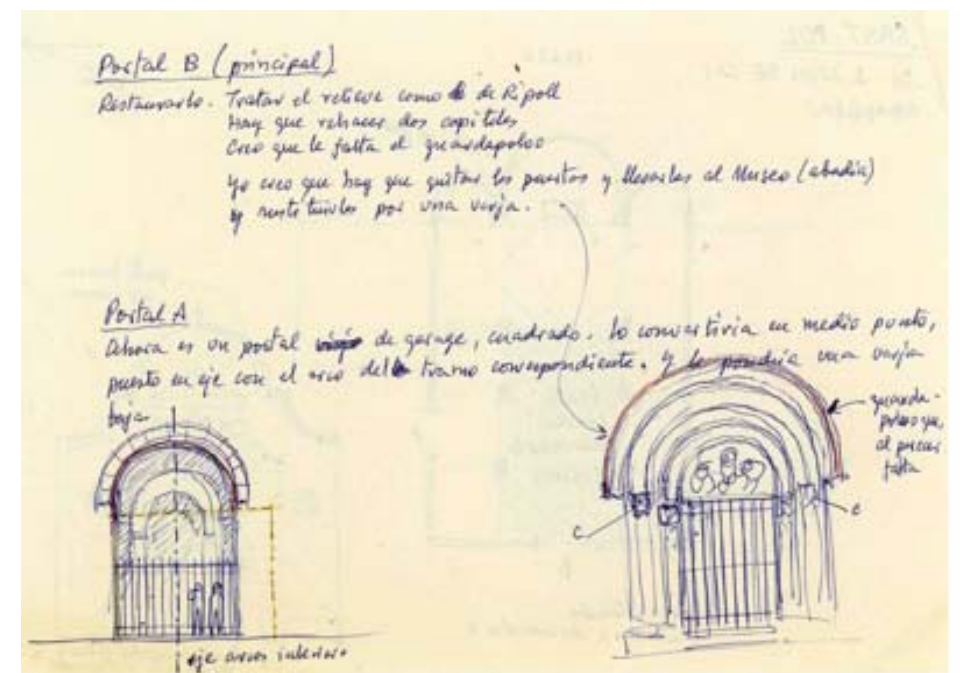 Portal B (principal)
Restaurarlo. Tratar el relieve como de Ripoll
Hay que rehacer dos capiteles
Creo que le falta el guardapolvo
Yo creo que hay que quitar las puertas y llevarlas al Museo (abadía)
y sustituirlas por una verja.
Portal A
Ahora es un portal de garage, cuadrado. Lo convertiría en medio punto,
puesto en eje con el arco del tramo correspondiente. Y le pondría una verja
baja
guarda-
polvo que,
al parecer
falta
c
c
eje arcos interiores